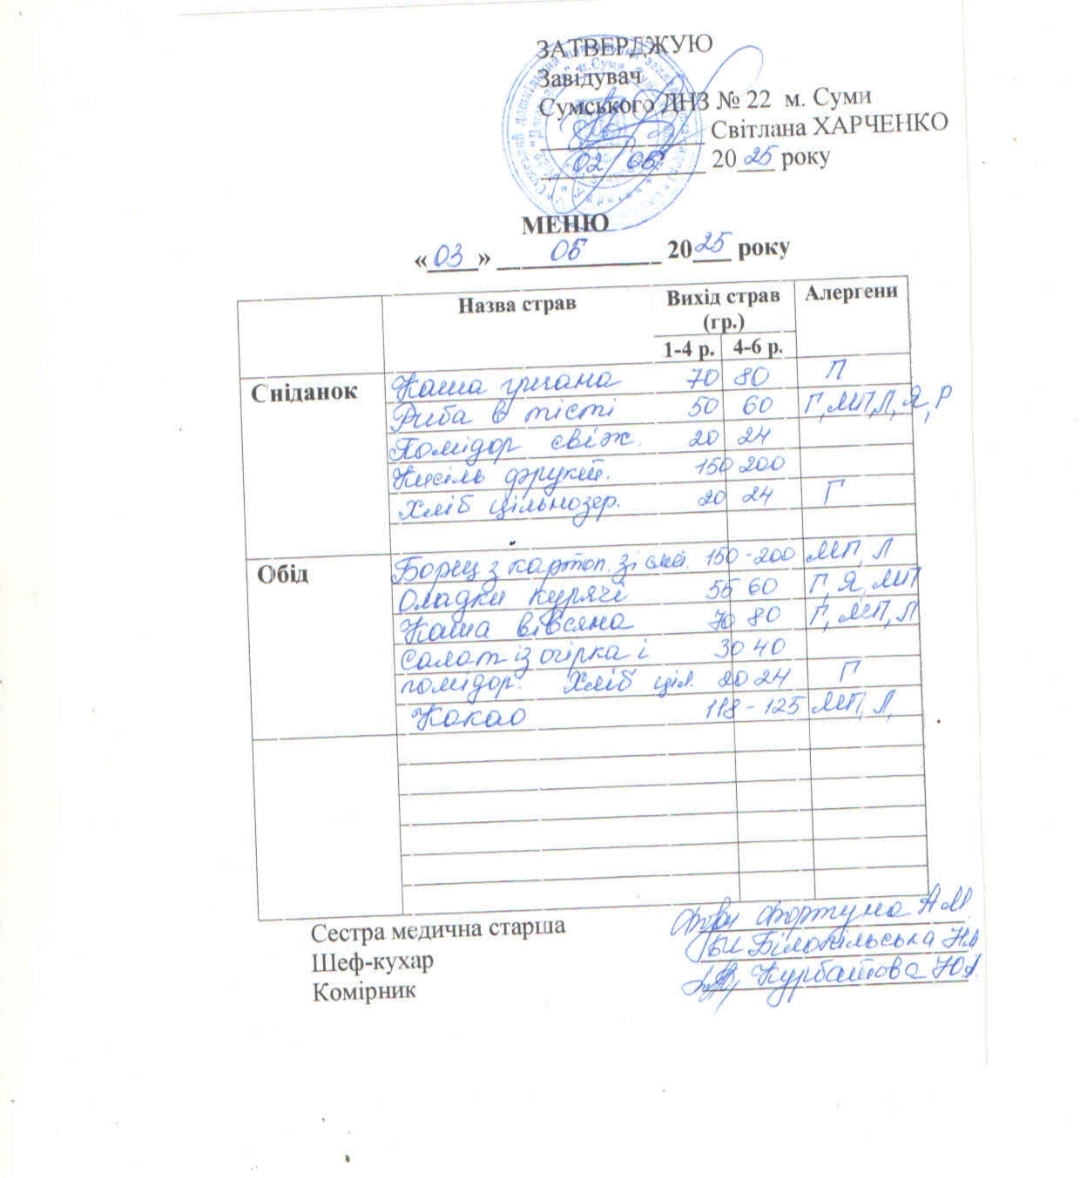 ЗАТВЕРДЖУЮ
Завідувач
Сумського ДНЗ № 22 м. Суми
Світлана ХАРЧЕНКО
02 06 2025 року
МЕНЮ
«03» 06 2025 року
Назва страв Вихід страв (гр.) Алергени
1-4 р. 4-6 р.
Сніданок Каша гречана 70 80 Л
Риба в тісті 50 60 Г, МП, Л, Я, Р
Помідор свіж. 20 24
Кисіль фрукт. 150 200
Хліб цільнозер. 20 24 Г
Обід Борщ з картоп. зі смет. 150-200 МП, Л
Оладки курячі 55 60 Г, Я, МП
Каша вівсяна 70 80 Г, МП, Л
Салат із огірка і 30 40
помідор. Хліб ціл. 20 24 Г
Какао 118-125 МП, Л
Сестра медична старша Фортуна А.М.
Шеф-кухар Білопільська Н.М
Комірник Курбатова Ю.